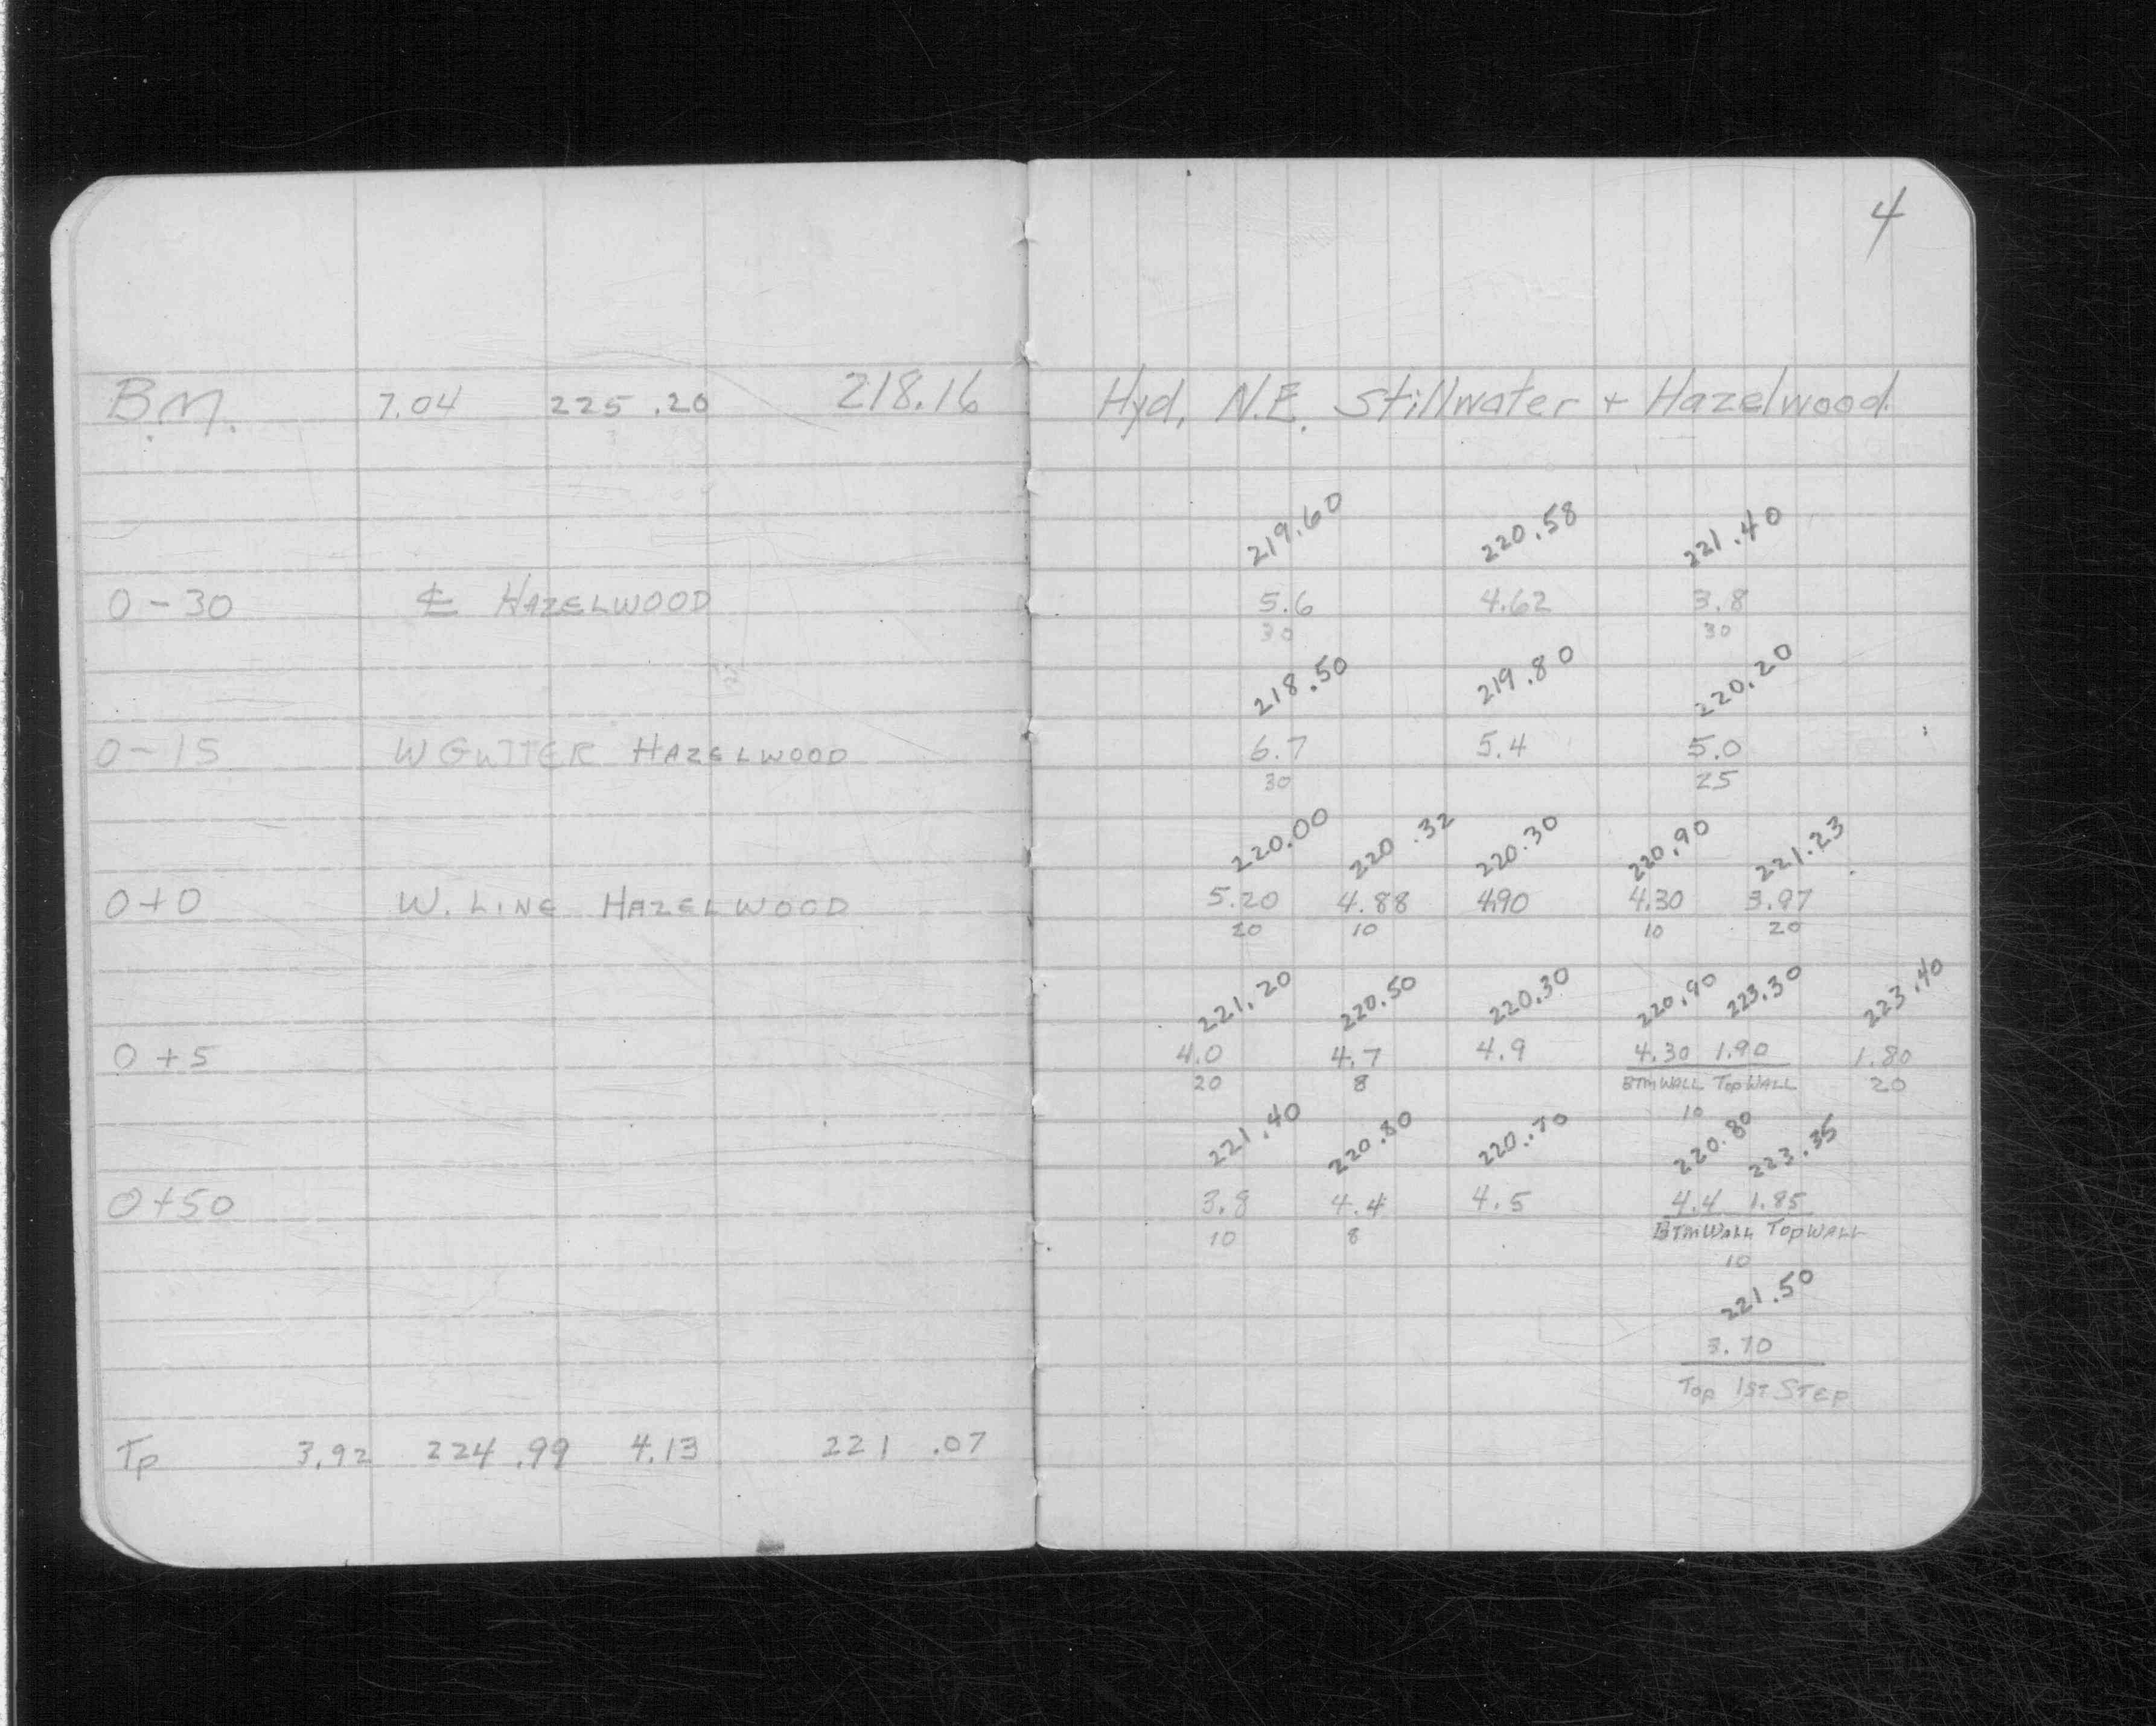 4
B.M. 7.04 225.20 218.16 Hyd. N.E. Stillwater + Hazelwood.
219.60 220.58 221.40
0-30 ℄ HAZELWOOD 5.6 4.62 3.8
30 30
218.50 219.80 220.20
0-15 W GUTTER HAZELWOOD 6.7 5.4 5.0
30 25
220.00 220.32 220.30 220.90 221.23
0+0 W. LINE HAZELWOOD 5.20 4.88 4.90 4.30 3.97
20 10 10 20
221.20 220.50 220.30 220.90 223.30 223.40
0+5 4.0 4.7 4.9 4.30 1.90 1.80
20 8 BTM WALL TOP WALL 20
10
221.40 220.80 220.70 220.80 223.35
0+50 3.8 4.4 4.5 4.4 1.85
10 8 BTM WALL TOP WALL
10
221.50
3.70
TOP 1ST STEP
Tp 3.92 224.99 4.13 221.07